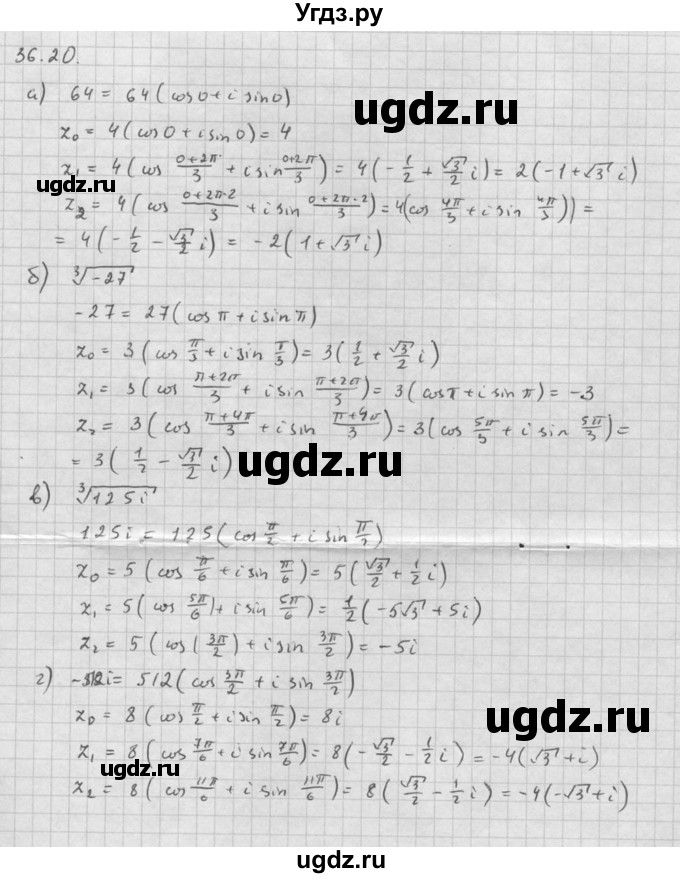 Угдз.ру
36.20.
а) 64 = 64(cos0+i sin0)
ugdz.ru
z₀ = 4(cos0+i sin0) = 4
z₁ = 4(cos (0+2π)/3 + i sin (0+2π)/3) = 4(-1/2 + √3/2 i) = 2(-1+√3 i)
z₂ = 4(cos (0+2π·2)/3 + i sin (0+2π·2)/3) = 4(cos 4π/3 + i sin 4π/3)) =
= 4(-1/2 - √3/2 i) = -2(1+√3 i)
б) ∛-27
-27 = 27(cos π + i sin π)
z₀ = 3(cos π/3 + i sin π/3) = 3(1/2 + √3/2 i)
z₁ = 3(cos (π+2π)/3 + i sin (π+2π)/3) = 3(cos π + i sin π) = -3
z₂ = 3(cos (π+4π)/3 + i sin (π+4π)/3) = 3(cos 5π/3 + i sin 5π/3) =
= 3(1/2 - √3/2 i)
ugdz.ru
в) ∛125i
125i = 125(cos π/2 + i sin π/2)
z₀ = 5(cos π/6 + i sin π/6) = 5(√3/2 + 1/2 i)
z₁ = 5(cos 5π/6) + i sin 5π/6) = 1/2(-5√3 + 5i)
z₂ = 5(cos(3π/2) + i sin 3π/2) = -5i
г) -512i = 512(cos 3π/2 + i sin 3π/2)
z₀ = 8(cos π/2 + i sin π/2) = 8i
ugdz.ru
z₁ = 8(cos 7π/6 + i sin 7π/6) = 8(-√3/2 - 1/2 i) = -4(√3 + i)
ugdz.ru
z₂ = 8(cos 11π/6 + i sin 11π/6) = 8(√3/2 - 1/2 i) = -4(-√3 + i)
ugdz.ru